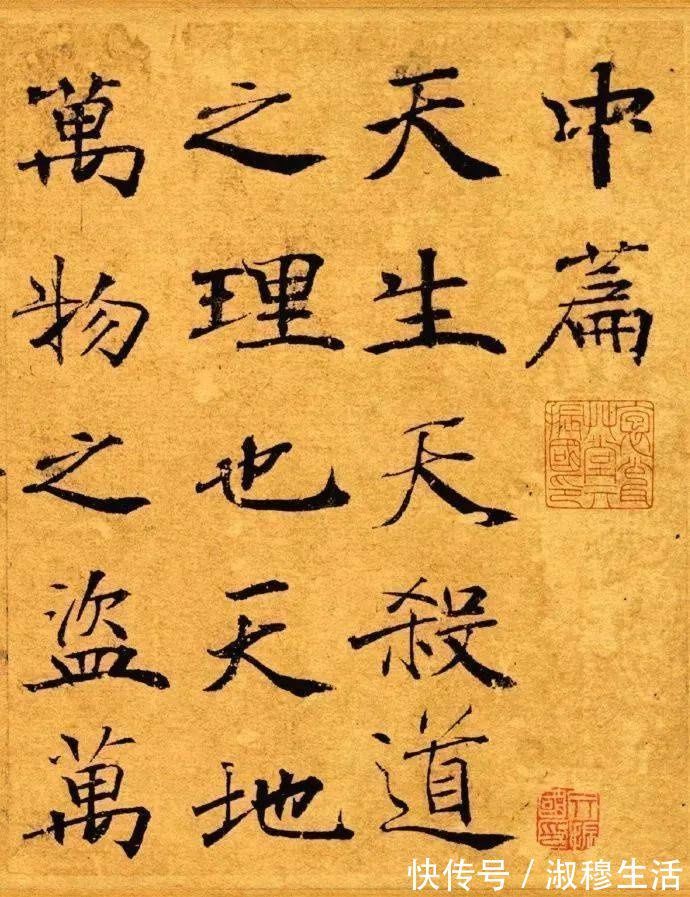 中篇
天生天殺道
之理也天地
萬物之盜萬
快传号/淑穆生活